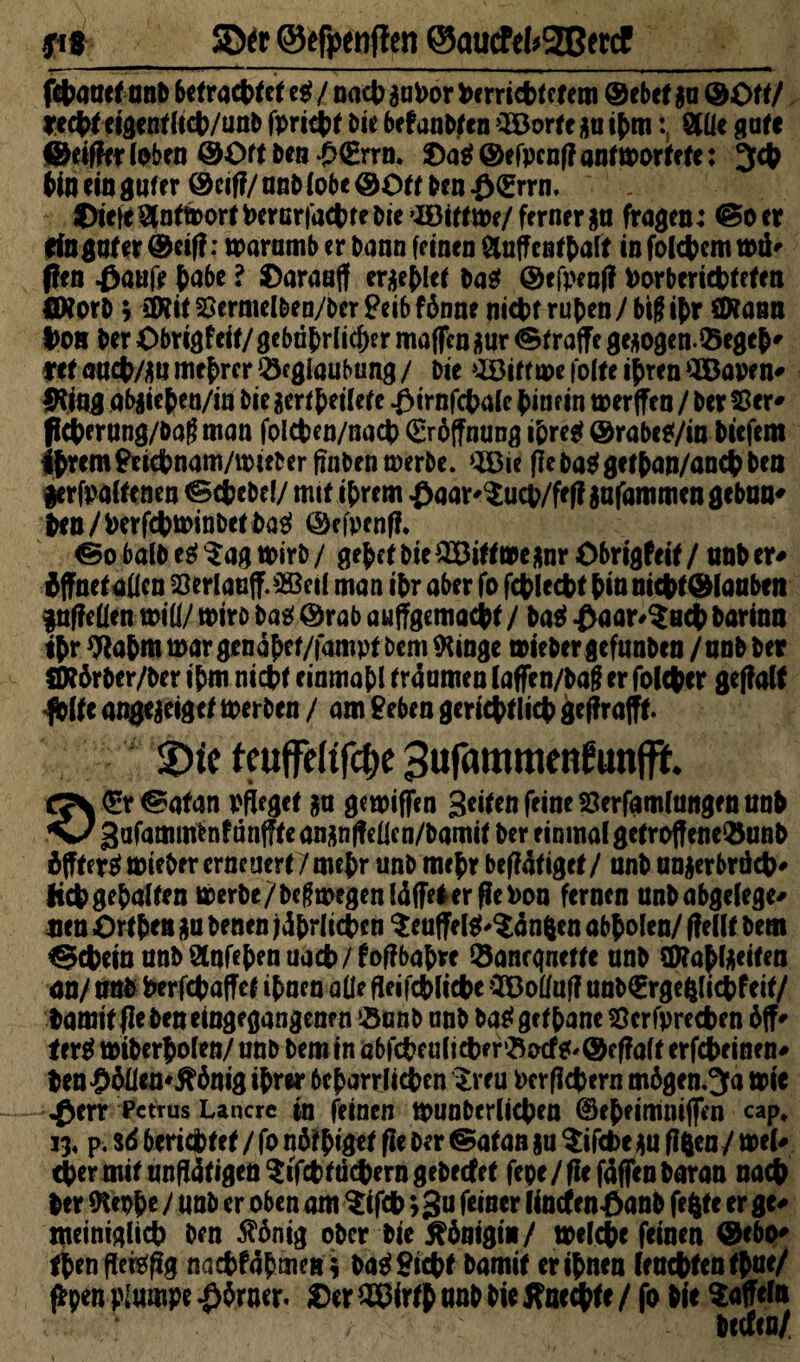 518 Der Gespensten Gauckel-Werck
schauet und betrachtet es / nach zuvor verrichtetem Gebet zu GOtt/
recht eigentlich/und spricht die bekandten Worte zu ihm: Alle gute
Geister loben GOtt den HErrn. Das Gespenst antwortete: Ich
bin ein guter Geist/ und lobe GOtt den HErrn.
Diese Antwort verursachte die Wittwe/ ferner zu fragen: So er
ein guter Geist: warumb er dann seinen Auffenthalt in solchem wü-
sten Hause habe? Darauff erzehlet das Gespenst vorberichteten
Mord; Mit Vermelden/der Leib könne nicht ruhen / biß ihr Mann
von der Obrigkeit/ gebührlicher massen zur Straffe gezogen. Begeh-
ret auch/zu mehrer Beglaubung / die Wittwe solte ihren Wapen-
Ring abziehen/in die zertheilete Hirnschale hinein werffen / der Ver-
sicherung/daß man solchen/nach Eröffnung ihres Grabes/in diesem
ihrem Leichnam/wieder finden werde. Wie sie das gethan/anch den
zerspaltenen Schedel/ mit ihrem Haar-Tuch/fest zusammen gebun-
den / verschwindet das Gespenst.
So bald es Tag wird / gehet die Wittwe zur Obrigkeit / und er-
öffnet allen Verlauff. Weil man ihr aber so schlecht hin nicht Glauben
zustellen will/ wird das Grab auffgemacht / das Haar-Tuch darinn
ihr Nahm war genähet/sampt dem Ringe wieder gefunden / und der
Mörder/der ihm nicht einmahl träumen lassen/daß er solcher gestalt
solte angezeiget werden / am Leben gerichtlich gestrafft.
Die teuffelische Zusammenkunfft.
DEr Satan pfleget zu gewissen Zeiten seine Versamlungen und
Zusammenkünffte anzustellen/damit der einmal getroffene Bund
öffters wieder erneuert / mehr und mehr bestätiget / und unzerbrüch-
lich gehalten werde / deßwegen lässet er sie von fernen und abgelege-
nen Orthen zu denen jährlichen Teuffels-Täntzen abholen/ stellt dem
Schein und Ansehen nach / kostbahre Banqnette und Mahlzeiten
an/ und verschaffet ihnen alle fleischliche Wollust und Ergetzlichkeit/
damit sie den eingegangenen Bund und das gethane Versprechen öff-
ters widerholen/ und dem in abscheulicher Bocks-Gestalt erscheinen-
den Höllen-König ihrer beharrlichen Treu versichern mögen. Ja wie
Herr Petrus Lancre in seinen wunderlichen Geheimnissen cap.
13. p. 86 berichtet / so nöthiget sie der Satan zu Tische zu sitzen / wel-
cher mit unflätigen Tischtüchern gedecket seye / sie sässen daran nach
der Reyhe / und er oben am Tisch; Zu seiner lincken Hand setzte er ge-
meiniglich den König oder die Königin / welche seinen Gebo-
then fleissig nachkähmen; das Licht damit er ihnen leuchten thue/
seyen plumpe Hörner. Der Wirth und die Knechte / so die Taffeln
decken/